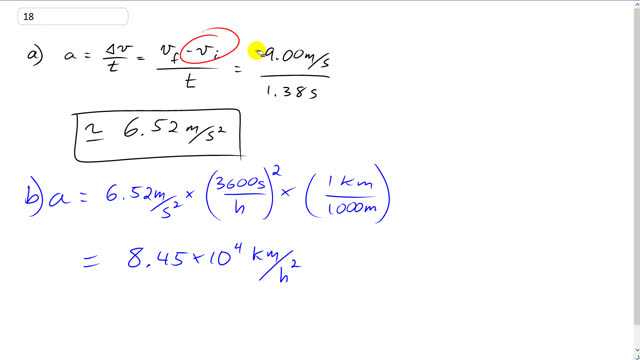 18
a) a = Δv/t = (v_f - v_i)/t = 9.00 m/s / 1.38 s
≃ 6.52 m/s²
b) a = 6.52 m/s² × (3600s/h)² × (1 km/1000m)
= 8.45 × 10⁴ km/h²